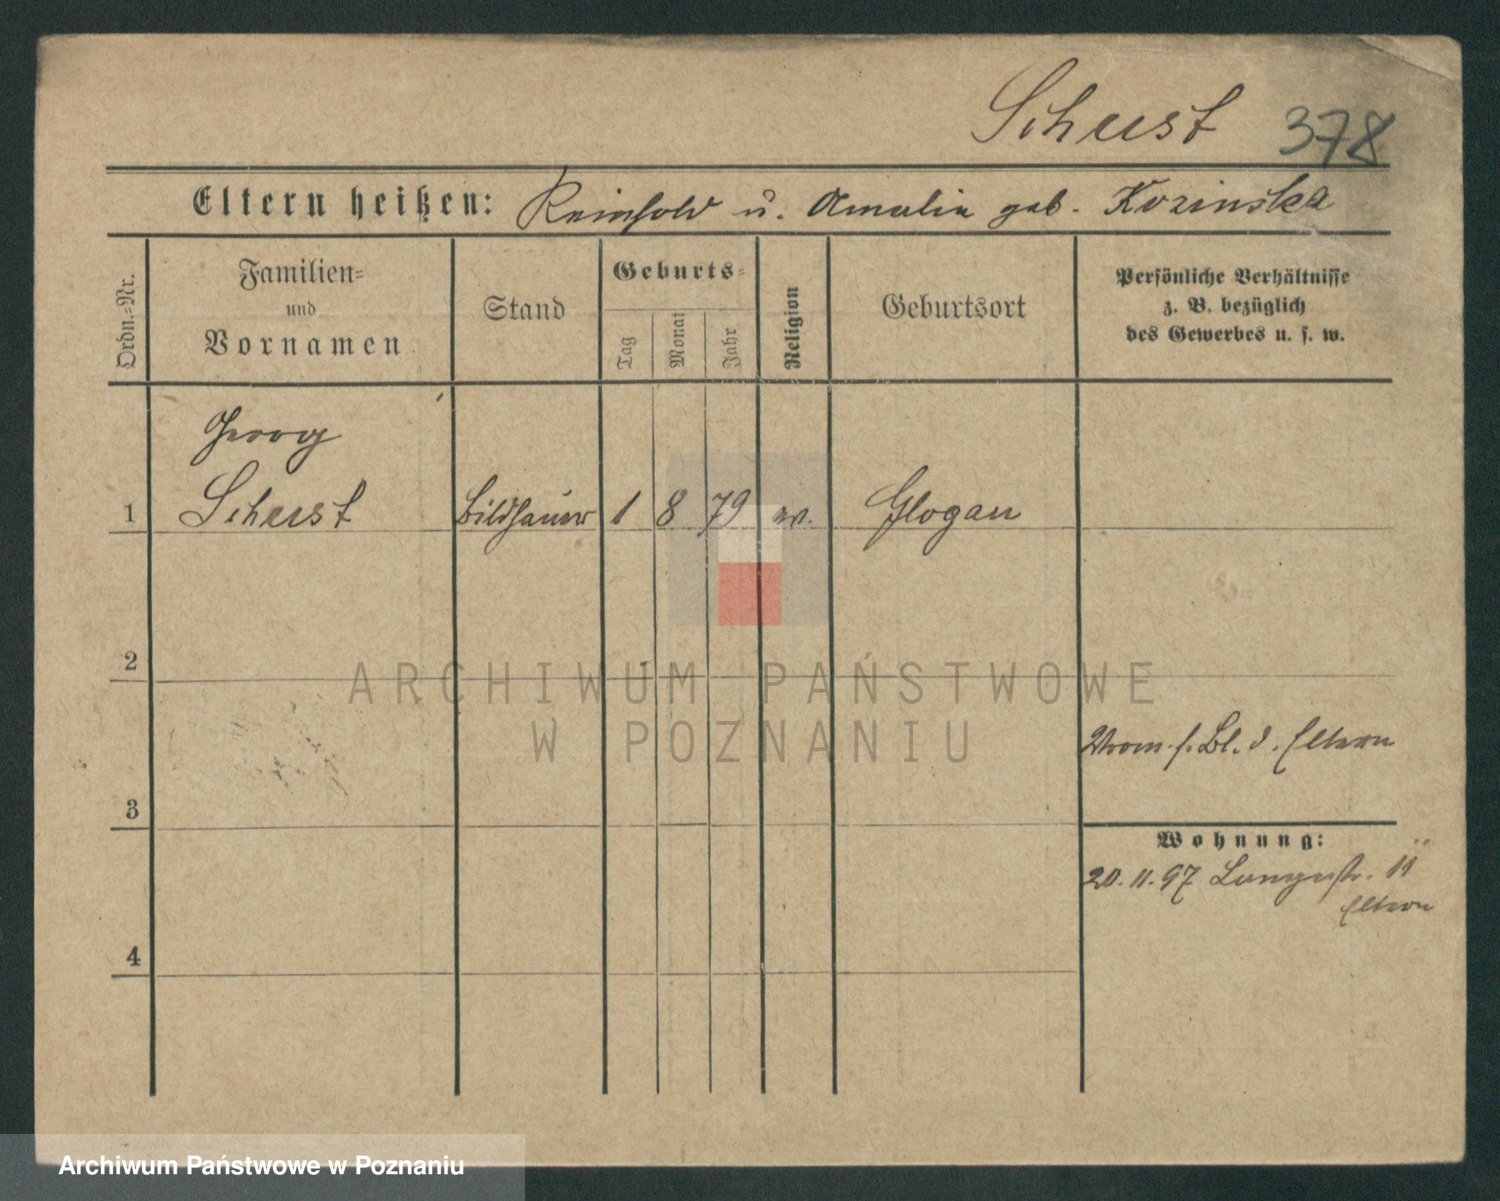 Scherst 378
Eltern heißen: Reinhold u. Amalia geb. Kozinska
Ordn.=Nr.
Familien=
und
Vornamen
Stand
Geburts=
Tag
Monat
Jahr
Religion
Geburtsort
Persönliche Verhältnisse
z. B. bezüglich
des Gewerbes u. s. w.
Georg
1 Scherst Bildhauer 1 8 79 ev. Glogau
2
ARCHIWUM PAŃSTWOWE
W POZNANIU
s. Bl. d. Eltern
3
Wohnung:
20.11.97 Langestr. 11
Eltern
4
Archiwum Państwowe w Poznaniu